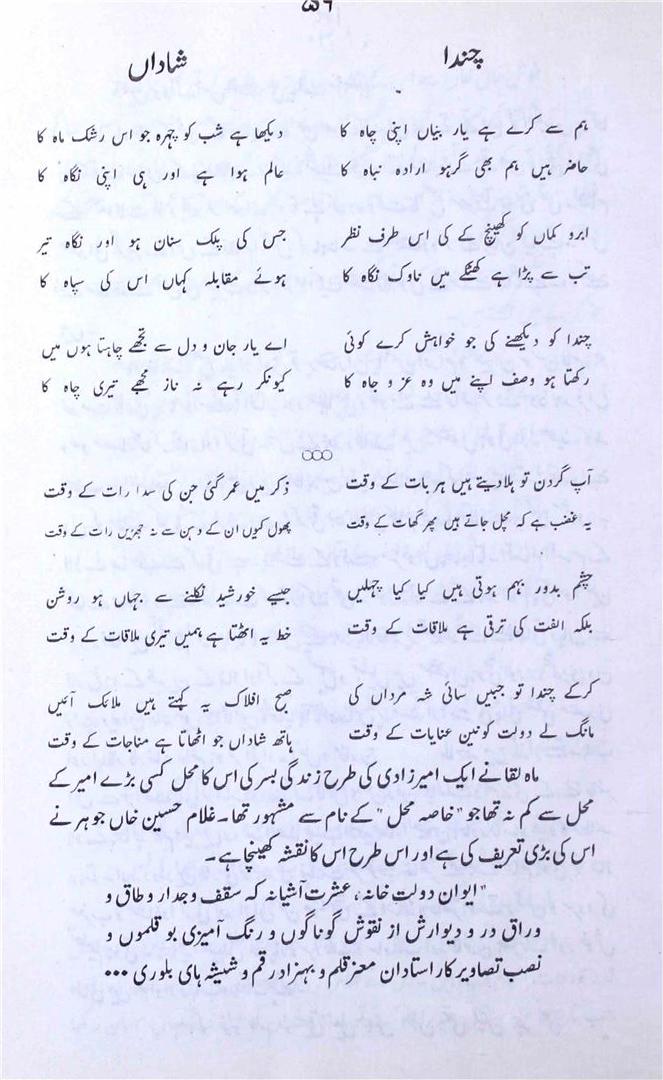 ۵۶
چندا شاداں
ہم سے کرے ہے یار بیاں اپنی چاہ کا دیکھا ہے شب کو چہرہ جو اس رشک ماہ کا
حاضر ہیں ہم بھی گرہو ارادہ نباہ کا عالم ہوا ہے اور ہی اپنی نگاہ کا
ابرو کماں کو کھینچ کے کی اس طرف نظر جس کی پلک سنان ہو اور نگاہ تیر
تب سے پڑا ہے کھٹکے میں ناوک نگاہ کا ہوئے مقابلہ کہاں اس کی سپاہ کا
چندا کو دیکھنے کی جو خواہش کرے کوئی اے یار جان و دل سے تجھے چاہتا ہوں میں
رکھتا ہو وصف اپنے میں وہ عز و جاہ کا کیونکر رہے نہ ناز تجھے تیری چاہ کا
آپ گردن تو ہلادیتے ہیں ہر بات کے وقت ذکر میں عمر گئی جن کی سدا رات کے وقت
یہ غضب ہے کہ مچل جاتے ہیں پھر گھات کے وقت پھول کیوں ان کے دہن سے نہ جھڑیں رات کے وقت
چشم بدور بہم ہوتی ہیں کیا کیا چہلیں جیسے خورشید نکلنے سے جہاں ہو روشن
بلکہ الفت کی ترقی ہے ملاقات کے وقت خط یہ اٹھتا ہے ہمیں تیری ملاقات کے وقت
کرکے چندا تو جبیں سائی شہ مرداں کی صبح افلاک پہ کہتے ہیں ملائک آئیں
مانگ لے دولت کونین عنایات کے وقت ہاتھ شاداں جو اٹھاتا ہے مناجات کے وقت
ماہ لقا نے ایک امیرزادی کی طرح زندگی بسر کی اس کا محل کسی بڑے امیر کے
محل سے کم نہ تھا جو "خاصہ محل" کے نام سے مشہور تھا۔ غلام حسین خاں جوہر نے
اس کی بڑی تعریف کی ہے اور اس طرح اس کا نقشہ کھینچا ہے۔
"ایوان دولت خانہ، عشرت آشیانہ کہ سقف و جدار و طاق و
وراق در و دیوارش از نقوش گوناگوں و رنگ آمیزی بو قلموں و
نصب تصاویر کار استادان معز قلم و بہزاد رقم و شیشہ ہای بلوری ...